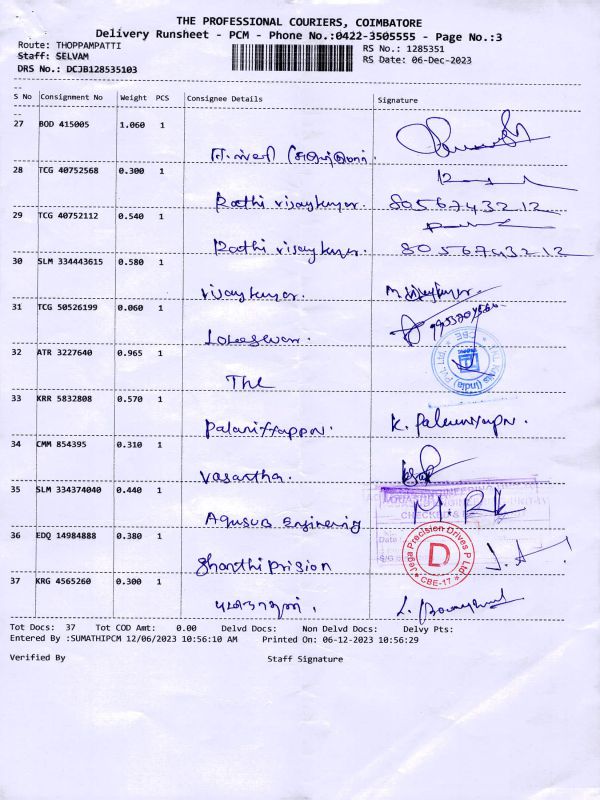 THE PROFESSIONAL COURIERS, COIMBATORE
Delivery Runsheet - PCM - Phone No.:0422-3505555 - Page No.:3
Route: THOPPAMPATTI RS No.: 1285351
Staff: SELVAM RS Date: 06-Dec-2023
DRS No.: DCJB128535103
S No Consignment No Weight PCS Consignee Details Signature
27 BOD 415005 1.060 1
28 TCG 40752568 0.300 1
Rathi vijaykumar. 8056743212
29 TCG 40752112 0.540 1
Rathi vijaykumar. 8056743212
30 SLM 334443615 0.580 1
vijaykumar. M. Vijaykumar
31 TCG 50526199 0.060 1
Lokeshwari.
32 ATR 3227640 0.965 1
The
33 KRR 5832808 0.570 1
Palaniyappan. K. Palaniyappn.
34 CMM 854395 0.310 1
Vasantha.
35 SLM 334374040 0.440 1
Aqusub Enginering
CHECKED
36 EDQ 14984888 0.380 1
Jega Precision Drives P Ltd
D
CBE-17
Shanthi prision
37 KRG 4565260 0.300 1
Tot Docs: 37 Tot COD Amt: 0.00 Delvd Docs: Non Delvd Docs: Delvy Pts:
Entered By :SUMATHIPCM 12/06/2023 10:56:10 AM Printed On: 06-12-2023 10:56:29
Verified By Staff Signature